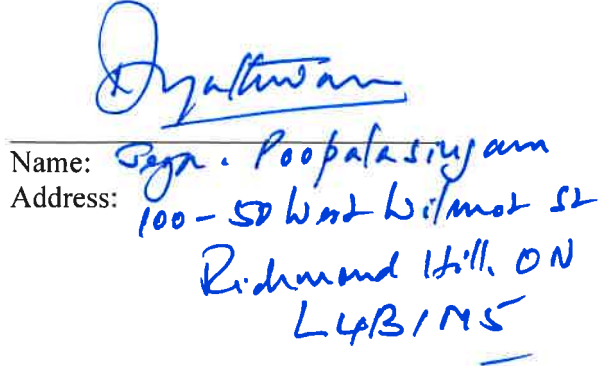 Name: Jega. Poopalasingam
Address: 100-50 West Wilmot St
Richmond Hill, ON
L4B1M5